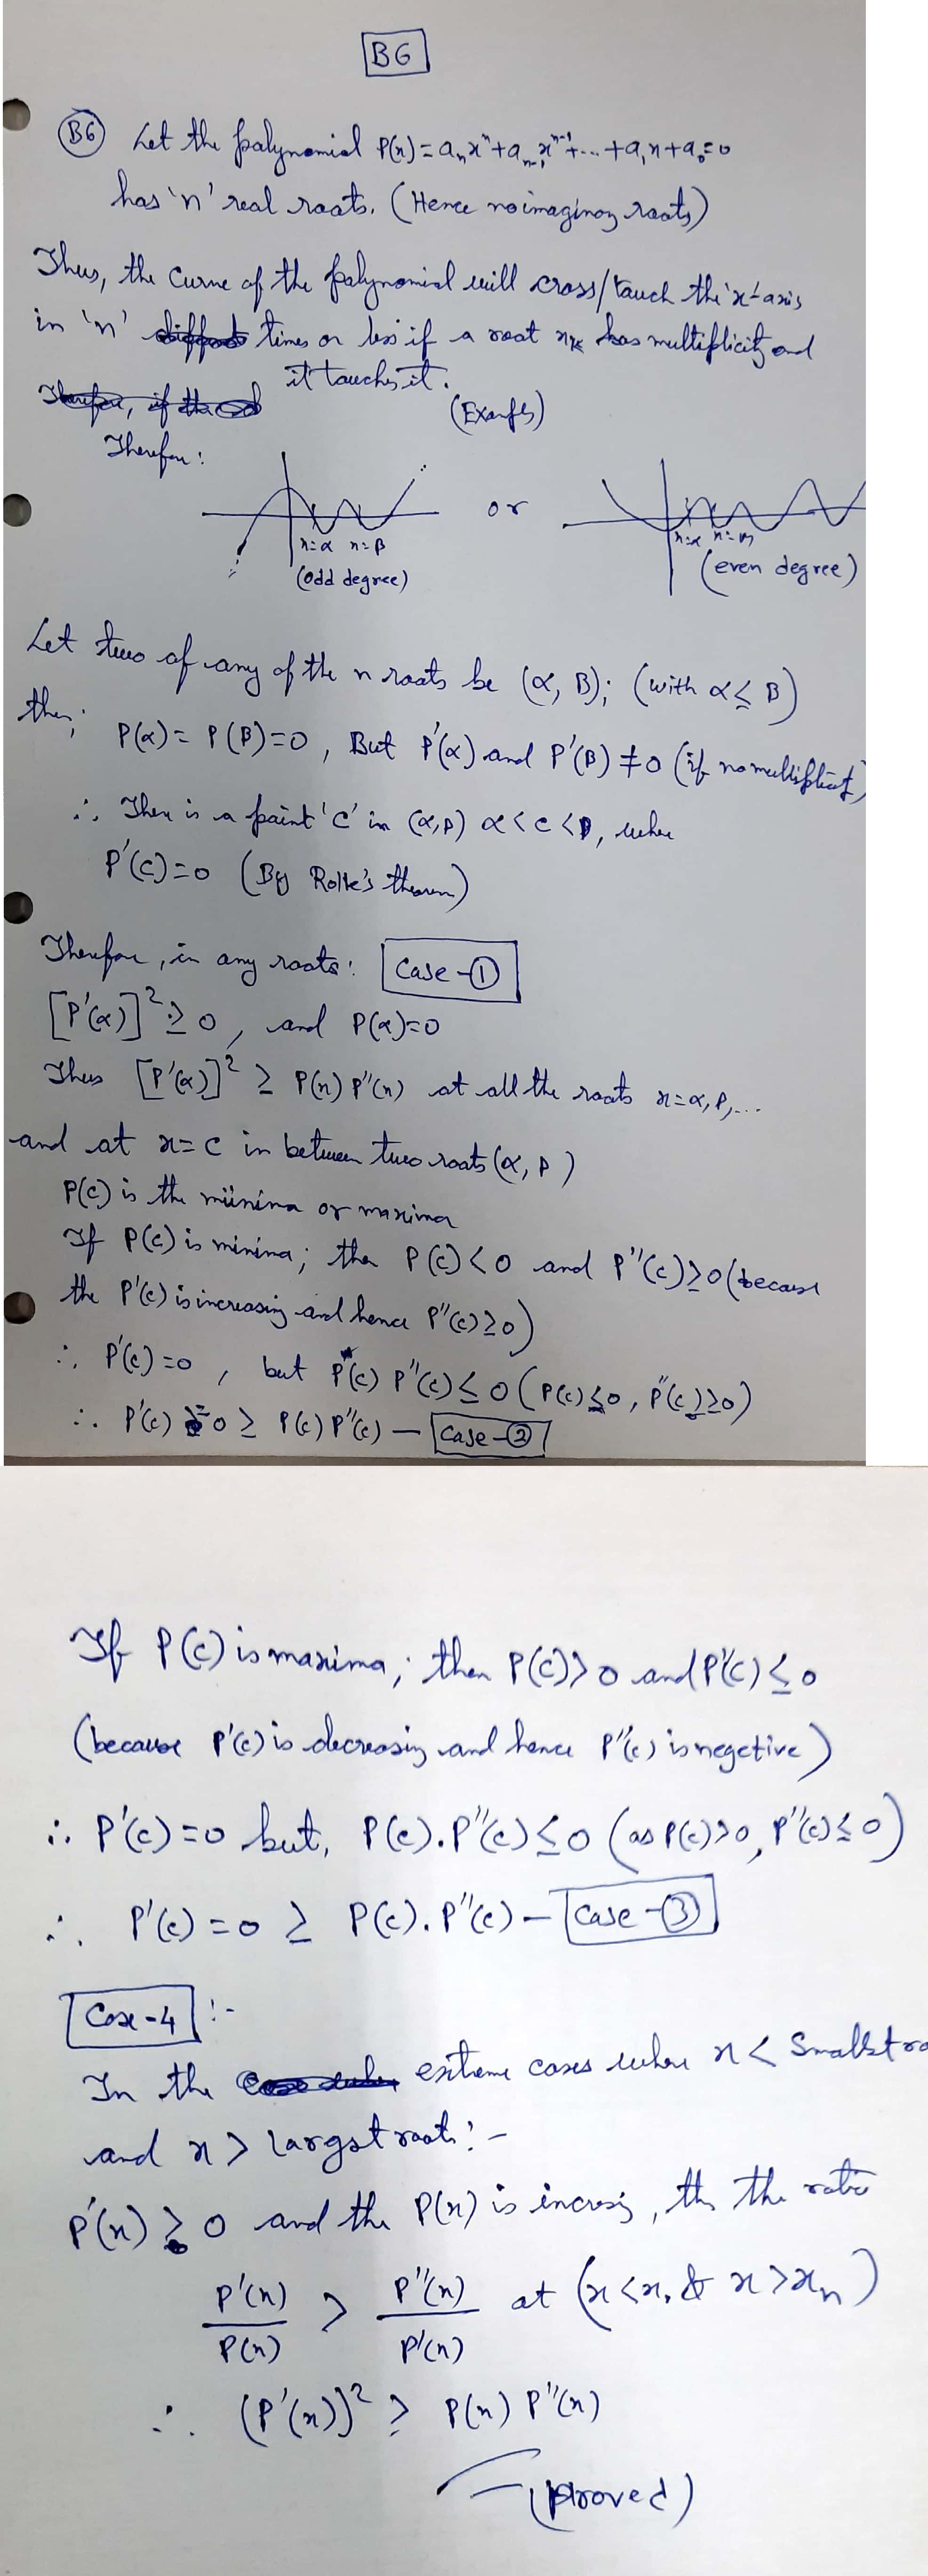 B6
B6 Let the polynomial P(x) = aₙxⁿ + aₙ₋₁xⁿ⁻¹ + ... + a₁x + a₀ = 0
has 'n' real roots. (Hence no imaginary roots)
Thus, the curve of the polynomial will cross/touch the 'x'-axis
in 'n' times or less if a root xₖ has multiplicity and
it touches it.
(Example)
Therefore:
or
x=α x=β
x=α x=β
(odd degree)
(even degree)
Let two of any of the n roots be (α, β); (with α ≤ β)
then;
P(α) = P(β) = 0, But P'(α) and P'(β) ≠ 0 (if no multiplicity)
∴ There is a point 'c' in (α, β) α < c < β, where
P'(c) = 0 (By Rolle's theorem)
Therefore, in any roots: Case-①
[P'(α)]² ≥ 0, and P(α) = 0
Thus [P'(α)]² ≥ P(x) P''(x) at all the roots x = α, β, ...
and at x = c in between two roots (α, β)
P(c) is the minima or maxima
If P(c) is minima; then P(c) < 0 and P''(c) ≥ 0 (because
the P'(c) is increasing and hence P''(c) ≥ 0)
∴ P'(c) = 0, but P(c) P''(c) ≤ 0 (P(c) ≤ 0, P''(c) ≥ 0)
∴ P'(c) = 0 ≥ P(c) P''(c) — Case-②
If P(c) is maxima; then P(c) > 0 and P''(c) ≤ 0
(because P'(c) is decreasing and hence P''(c) is negetive)
∴ P'(c) = 0 but, P(c). P''(c) ≤ 0 (as P(c) > 0, P''(c) ≤ 0)
∴ P'(c) = 0 ≥ P(c). P''(c) — Case-③
Case-4 :-
In the extreme cases where x < Smallest
and x > largest roots :-
P'(x) ≥ 0 and the P(x) is increasing, the the ratio
P'(x)/P(x) > P''(x)/P'(x) at (x < x₁ & x > xₙ)
∴ (P'(x))² ≥ P(x) P''(x)
(proved)